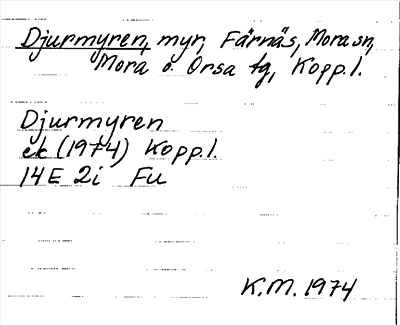 Djurmyren, myr, Färnäs, Mora sn,
Mora o. Orsa tg, Kopp.l.
Djurmyren
ek (1974) Kopp.l.
14E 2i Fu
K.M. 1974